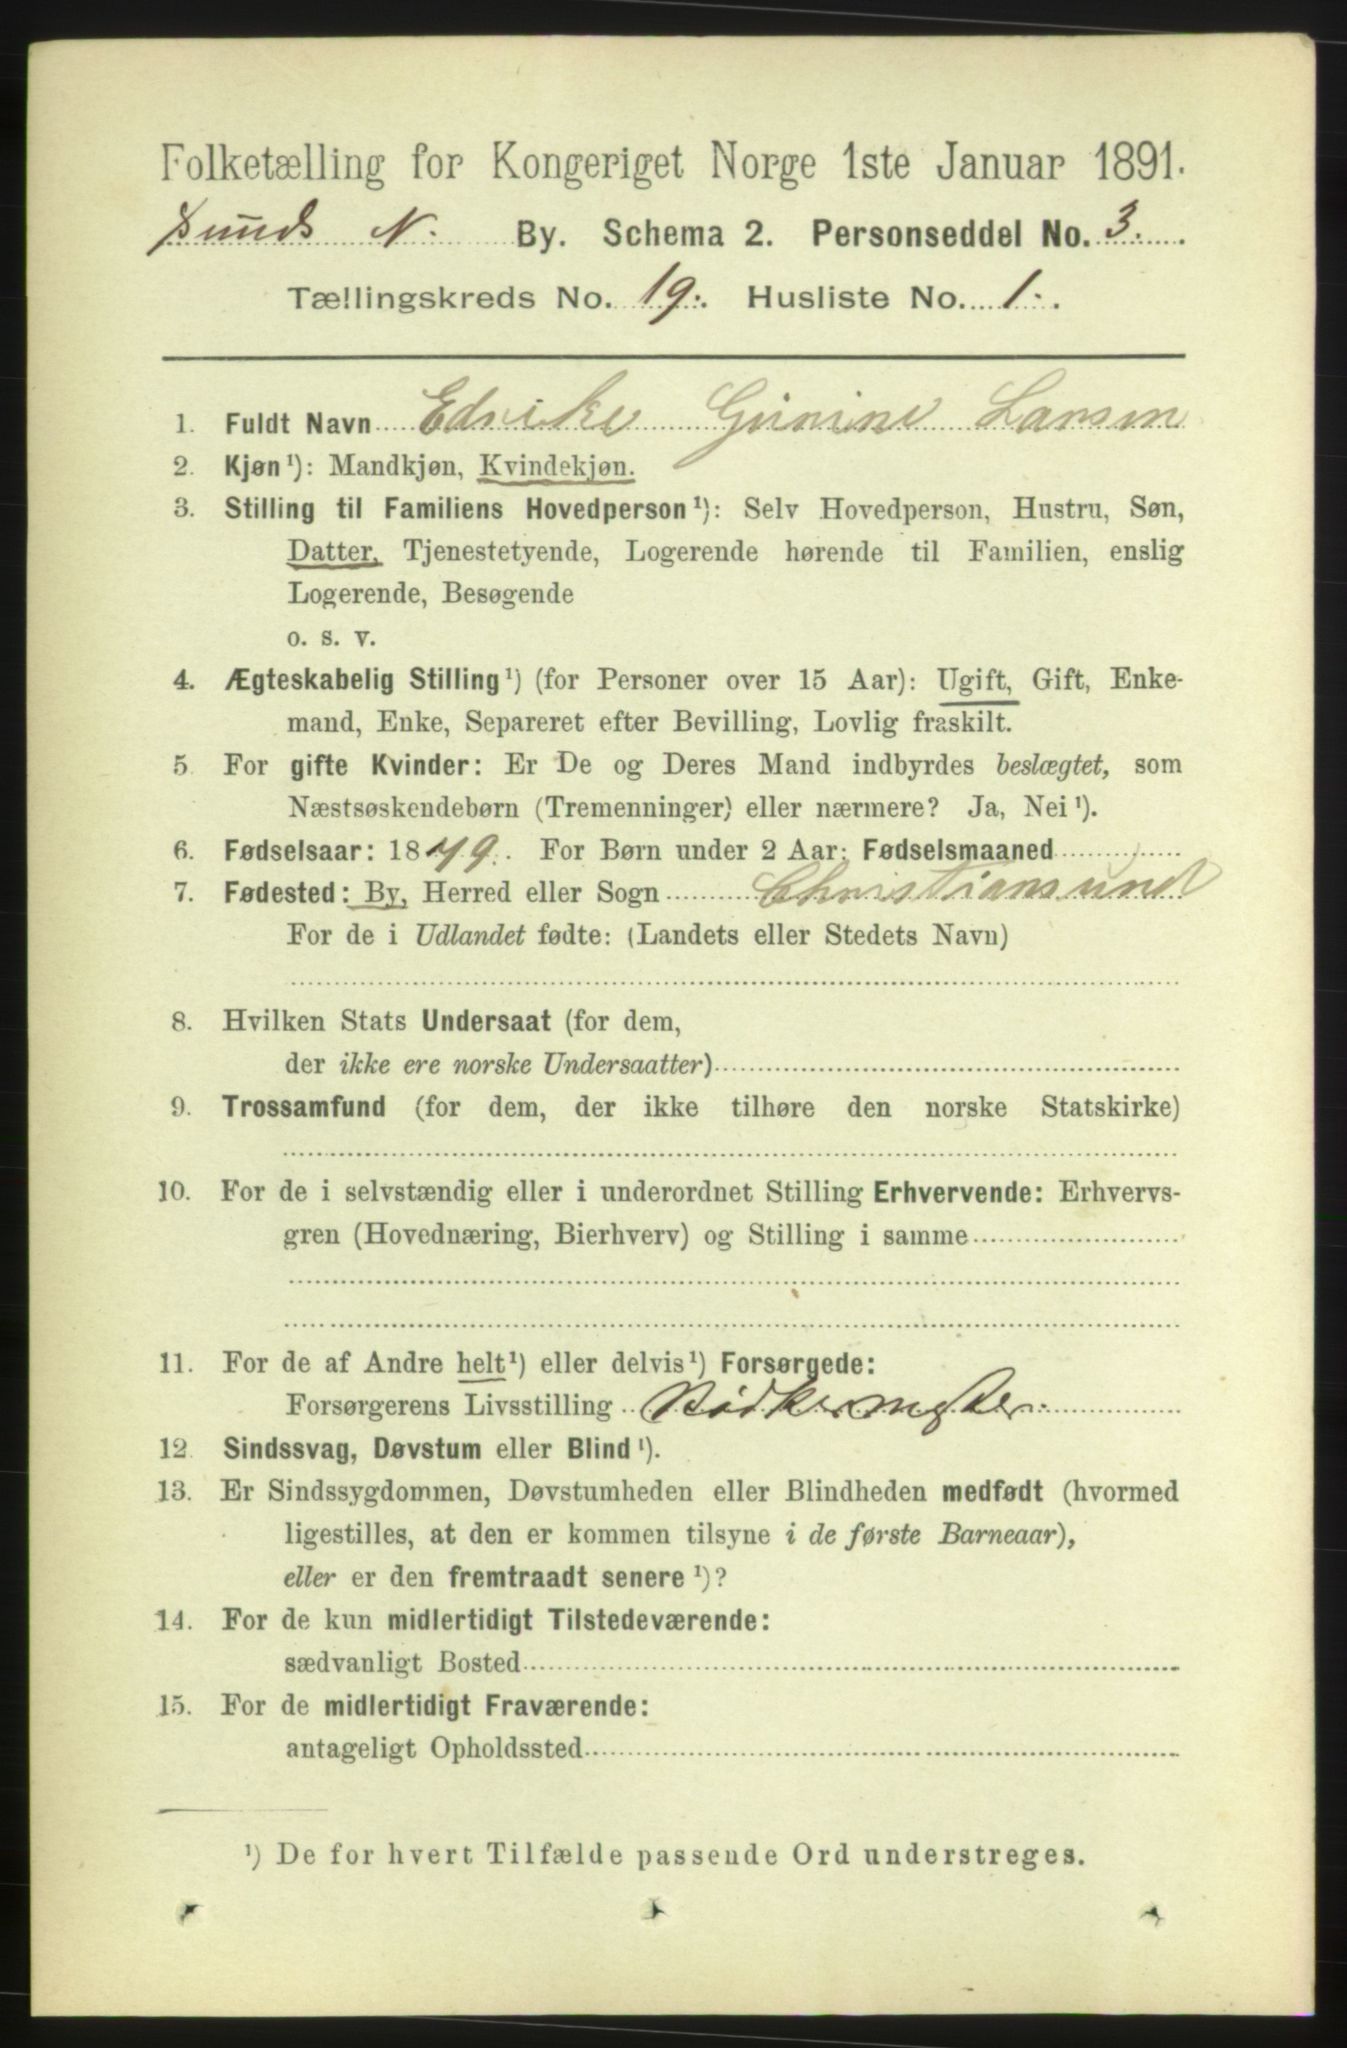 Folketælling for Kongeriget Norge 1ste Januar 1891.
Xsunds N. By. Schema 2. Personseddel No. 3.
Tællingskreds No. 19. Husliste No. 1.
1. Fuldt Navn Larsen
2. Kjøn¹): Mandkjøn, Kvindekjøn.
3. Stilling til Familiens Hovedperson¹): Selv Hovedperson, Hustru, Søn,
Datter, Tjenestetyende, Logerende hørende til Familien, enslig
Logerende, Besøgende
o. s. v.
4. Ægteskabelig Stilling¹) (for Personer over 15 Aar): Ugift, Gift, Enke-
mand, Enke, Separeret efter Bevilling, Lovlig fraskilt.
5. For gifte Kvinder: Er De og Deres Mand indbyrdes beslægtet, som
Næstsøskendebørn (Tremenninger) eller nærmere? Ja, Nei¹).
6. Fødselsaar: 1879. For Børn under 2 Aar: Fødselsmaaned
7. Fødested: By, Herred eller Sogn Christiansund
For de i Udlandet fødte: (Landets eller Stedets Navn)
8. Hvilken Stats Undersaat (for dem,
der ikke ere norske Undersaatter)
9. Trossamfund (for dem, der ikke tilhøre den norske Statskirke)
10. For de i selvstændig eller i underordnet Stilling Erhvervende: Erhvervs-
gren (Hovednæring, Bierhverv) og Stilling i samme
11. For de af Andre helt¹) eller delvis¹) Forsørgede:
Forsørgerens Livsstilling Bødkermester.
12. Sindssvag, Døvstum eller Blind¹).
13. Er Sindssygdommen, Døvstumheden eller Blindheden medfødt (hvormed
ligestilles, at den er kommen tilsyne i de første Barneaar),
eller er den fremtraadt senere¹)?
14. For de kun midlertidigt Tilstedeværende:
sædvanligt Bosted
15. For de midlertidigt Fraværende:
antageligt Opholdssted
¹) De for hvert Tilfælde passende Ord understreges.